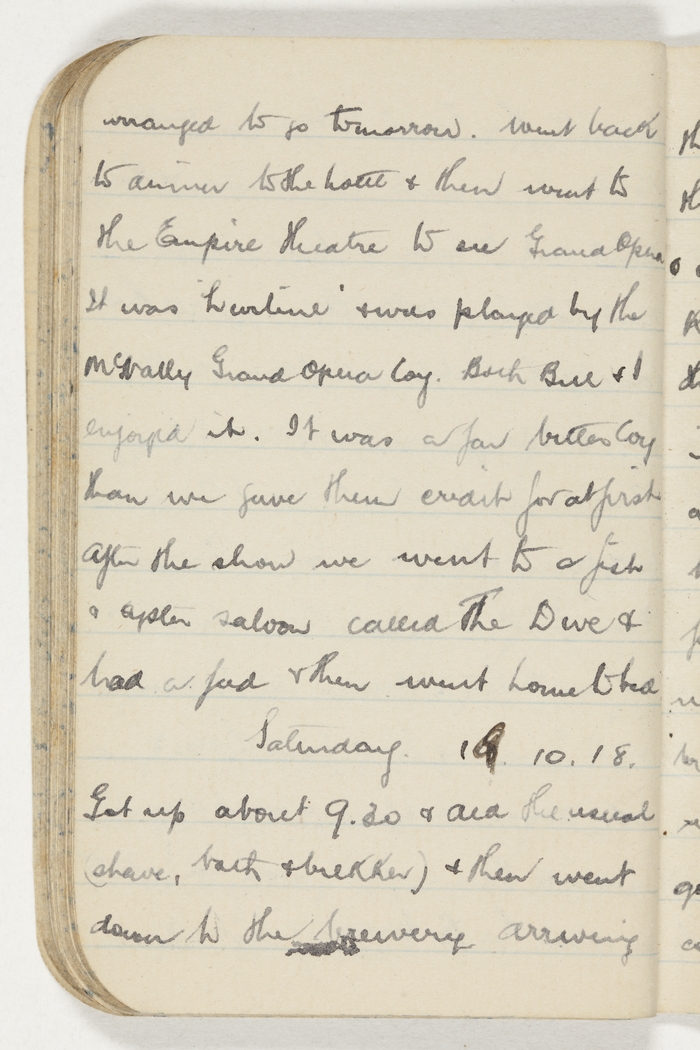 arranged to go tomorrow. Went back
to dinner to the hotel & then went to
the Empire theatre to see Grand Opera
It was 'Lurline' & was played by the
McNally Grand Opera Coy. Both Bill & I
enjoyed it. It was a far better Coy
than we gave them credit for at first
After the show we went to a fish
& oyster saloon called The Dive &
had a feed & then went home to bed
Saturday. 19. 10. 18.
Got up about 9.30 & did the usual
(shave, bath & brekker) & then went
down to the brewery arriving